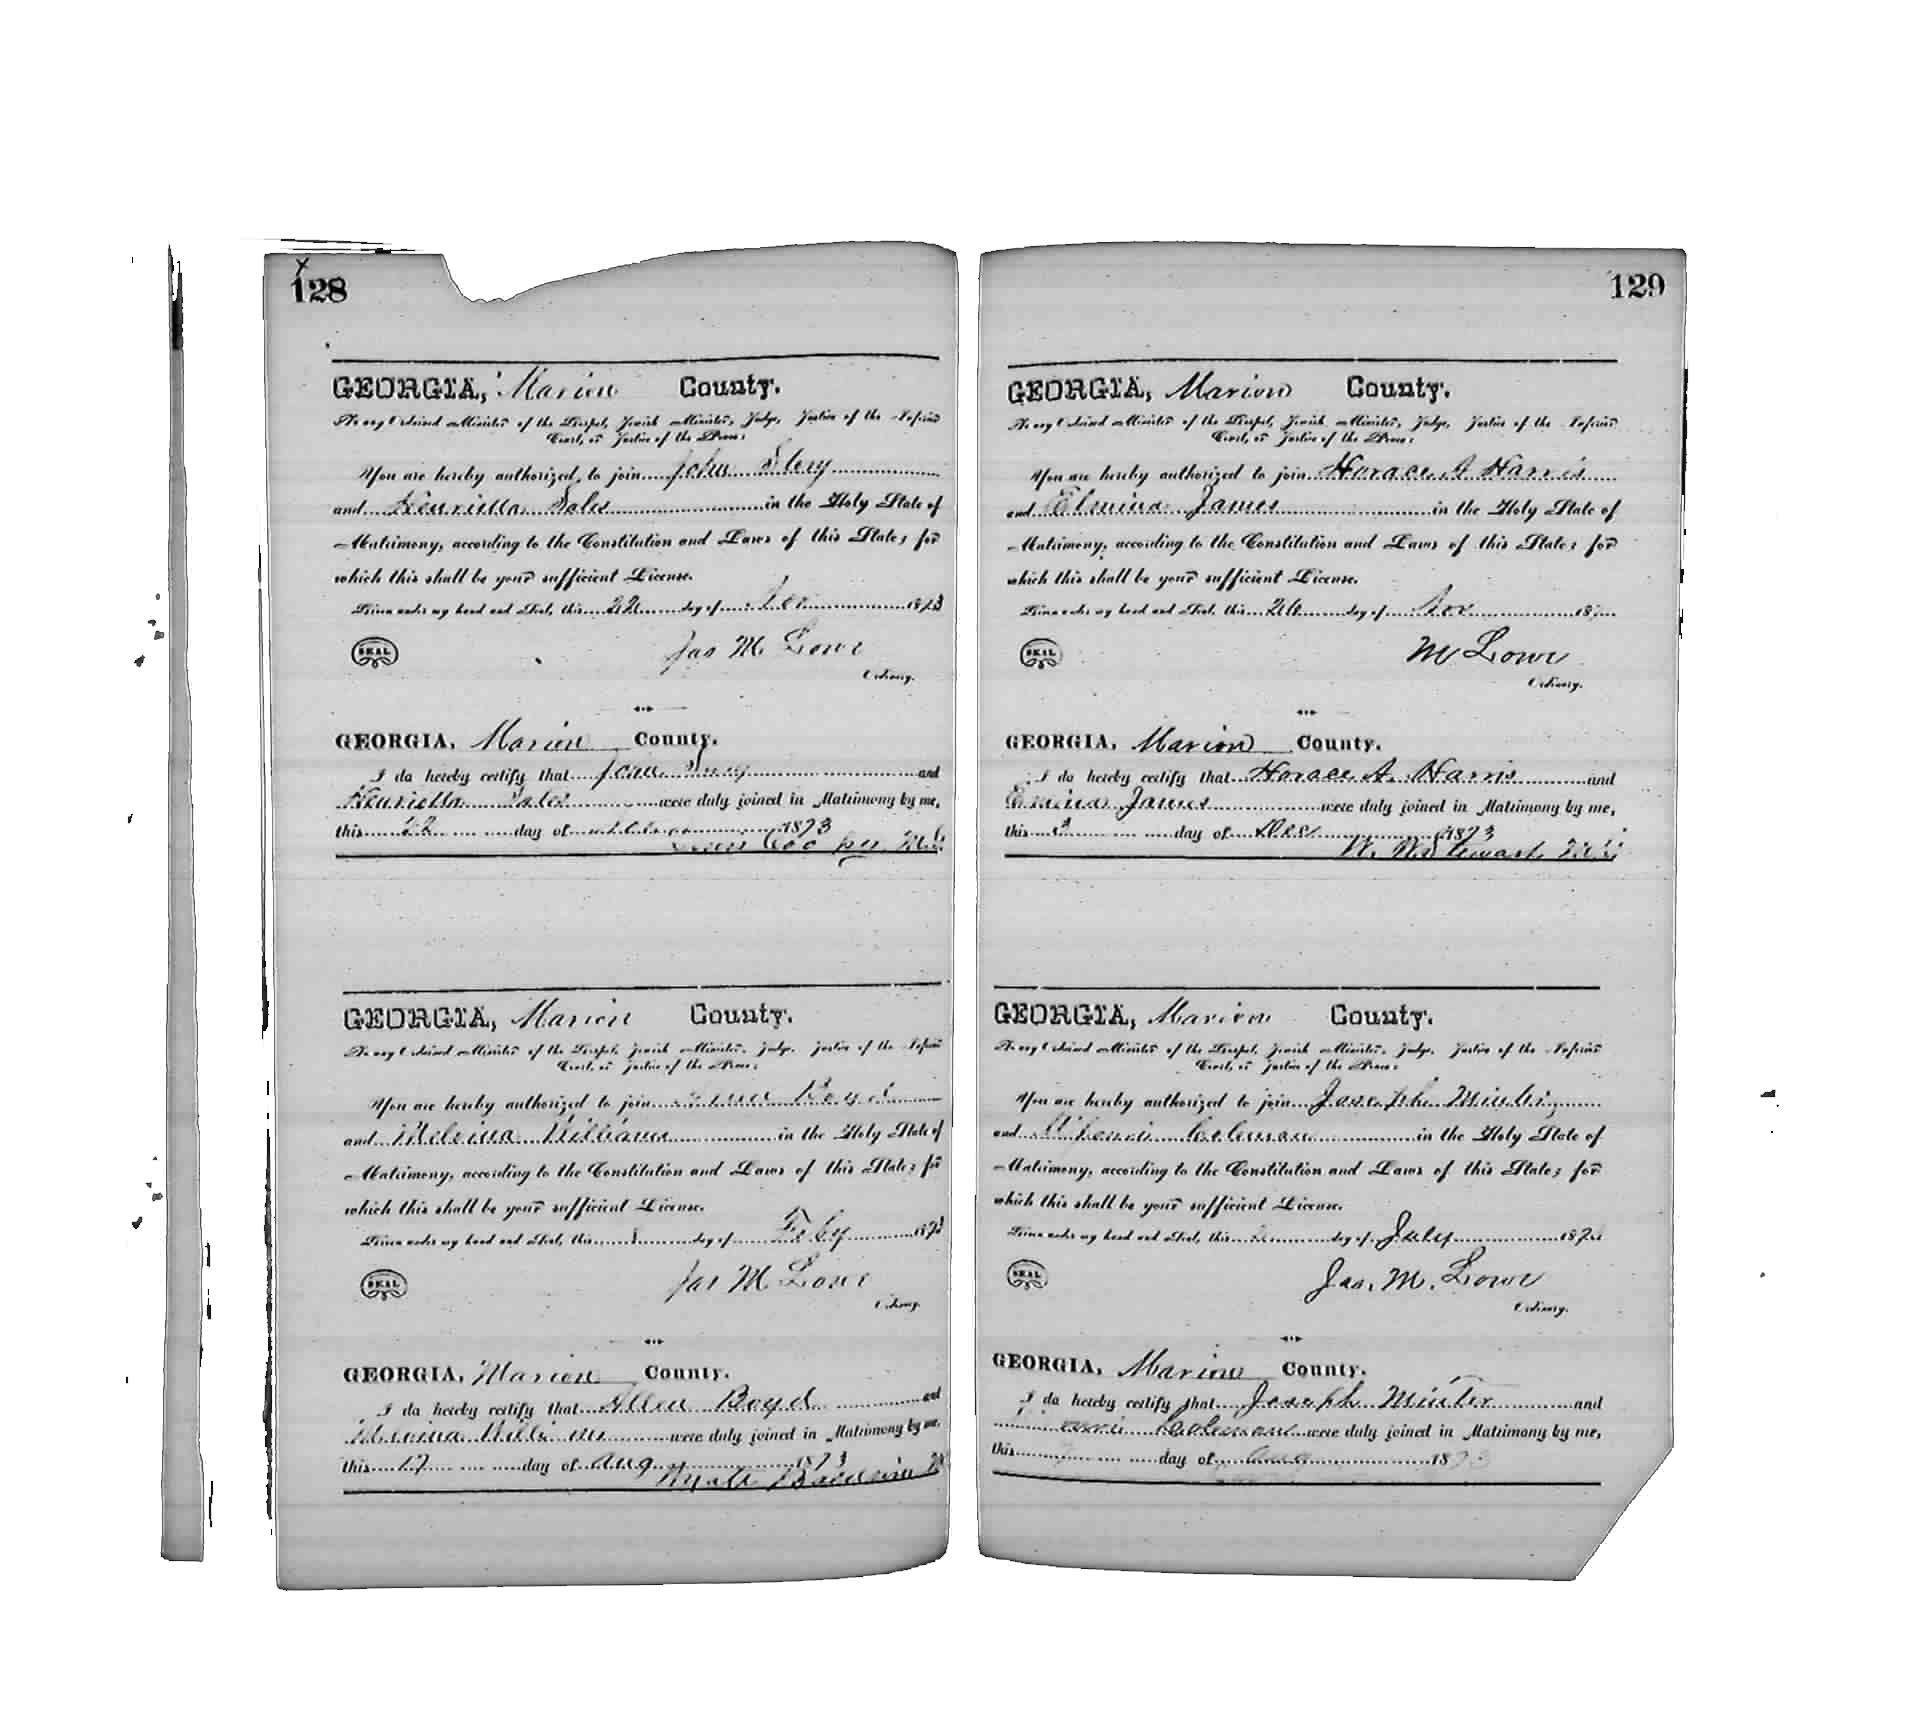 128
GEORGIA, Marion County.
To any Ordained Minister of the Gospel, Jewish Minister, Judge, Justice of the Inferior
Court, or Justice of the Peace:
You are hereby authorized to join John
and Henrietta Sales in the Holy State of
Matrimony, according to the Constitution and Laws of this State; for
which this shall be your sufficient License.
Given under my hand and Seal, this 22 day of 1873
SEAL
Jas M Lowe
Ordinary.
GEORGIA, Marion County.
I do hereby certify that John and
Henrietta Sales were duly joined in Matrimony by me,
this 22 day of 1873
Cooper
GEORGIA, Marion County.
To any Ordained Minister of the Gospel, Jewish Minister, Judge, Justice of the Inferior
Court, or Justice of the Peace:
You are hereby authorized to join Boyd
and Melvina Williams in the Holy State of
Matrimony, according to the Constitution and Laws of this State; for
which this shall be your sufficient License.
Given under my hand and Seal, this 8 day of Feby 1873
SEAL
Jas M Lowe
Ordinary.
GEORGIA, Marion County.
I do hereby certify that Allen Boyd and
Williams were duly joined in Matrimony by me,
this 17 day of Aug 1873
Wyatt Baldwin
129
GEORGIA, Marion County.
To any Ordained Minister of the Gospel, Jewish Minister, Judge, Justice of the Inferior
Court, or Justice of the Peace:
You are hereby authorized to join Horace A Harris
and Elmina James in the Holy State of
Matrimony, according to the Constitution and Laws of this State; for
which this shall be your sufficient License.
Given under my hand and Seal, this 26 day of Nov 187
SEAL
M Lowe
Ordinary.
GEORGIA, Marion County.
I do hereby certify that Horace A. Harris and
James were duly joined in Matrimony by me,
this 3 day of Dec 1873
W. W. Stewart
GEORGIA, Marion County.
To any Ordained Minister of the Gospel, Jewish Minister, Judge, Justice of the Inferior
Court, or Justice of the Peace:
You are hereby authorized to join Joseph Minter
and Coleman in the Holy State of
Matrimony, according to the Constitution and Laws of this State; for
which this shall be your sufficient License.
Given under my hand and Seal, this day of July 187
SEAL
Jas. M. Lowe
Ordinary.
GEORGIA, Marion County.
I do hereby certify that Joseph Minter and
Coleman were duly joined in Matrimony by me,
this 7 day of Aug 1873